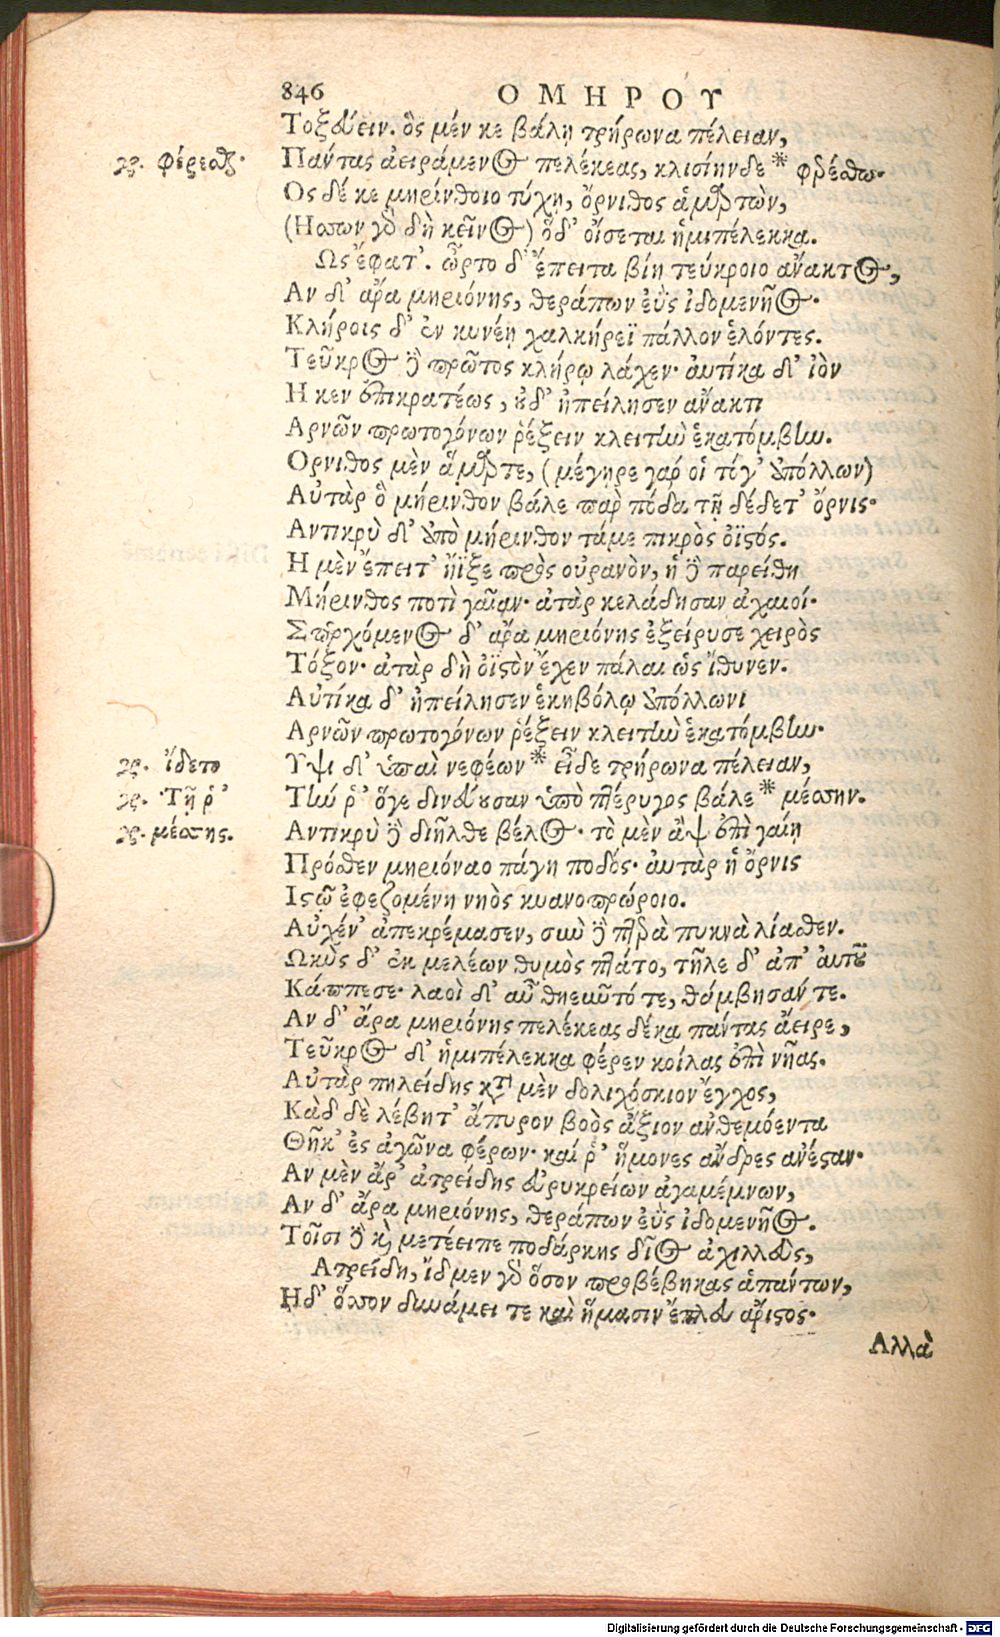 846 ΟΜΗΡΟΥ
Τοξεύειν. ὃς μέν κε βάλῃ τρήρωνα πέλειαν,
γρ. φέρεσθαι· Πάντας ἀειράμενος πελέκεας, κλισίηνδε * φερέσθω·
Ος δέ κε μηρίνθοιο τύχῃ, ὄρνιθος ἁμαρτὼν,
(Ησσων γὰρ δὴ κεῖνος) ὅδ' οἴσεται ἡμιπέλεκκα.
Ως ἔφατ'. ὦρτο δ' ἔπειτα βίη τεύκροιο ἄνακτος,
Αν δ' ἄρα μηριόνης, θεράπων ἐῢς ἰδομενῆος·
Κλήροις δ' ἐν κυνέῃ χαλκήρεϊ πάλλον ἑλόντες.
Τεῦκρος δὲ πρῶτος κλήρῳ λάχεν· αὐτίκα δ' ἰὸν
Η κεν ἐπικρατέως, οὐδ' ἠπείλησεν ἄνακτι
Αρνῶν πρωτογόνων ῥέξειν κλειτὴν ἑκατόμβην.
Ορνιθος μὲν ἅμαρτε, (μέγηρε γάρ οἱ τόγ' ἀπόλλων)
Αὐτὰρ ὃ μήρινθον βάλε παρ πόδα τῇ δέδετ' ὄρνις·
Αντικρὺ δ' ἀπὸ μήρινθον τάμε πικρὸς ὀϊστός.
Η μὲν ἔπειτ' ἤϊξε πρὸς οὐρανὸν, ἡ δὲ παρείθη
Μήρινθος ποτὶ γαῖαν· ἀτὰρ κελάδησαν ἀχαιοί·
Σπερχόμενος δ' ἄρα μηριόνης ἐξείρυσε χειρὸς
Τόξον· ἀτὰρ δὴ ὀϊστὸν ἔχεν πάλαι ὡς ἴθυνεν.
Αὐτίκα δ' ἠπείλησεν ἑκηβόλῳ ἀπόλλωνι
Αρνῶν πρωτογόνων ῥέξειν κλειτὴν ἑκατόμβην·
γρ. ἴδετο Υψι δ' ὑπαὶ νεφέων * εἶδε τρήρωνα πέλειαν,
γρ. Τῇ ῥ' Τήν ῥ' ὅγε δινεύουσαν ὑπὸ πτέρυγος βάλε * μέσσην.
γρ. μέσσης. Αντικρὺ δὲ διῆλθε βέλος· τὸ μὲν ἂψ ἐπὶ γαίῃ
Πρόσθεν μηριόναο πάγη ποδός· αὐτὰρ ἡ ὄρνις
Ιστῷ ἐφεζομένη νηὸς κυανοπρώροιο.
Αὐχέν' ἀπεκρέμασεν, σὺν δὲ πτερὰ πυκνὰ λίασθεν.
Ωκὺς δ' ἐκ μελέων θυμὸς πτάτο, τῆλε δ' ἀπ' αὐτοῦ
Κάππεσε· λαοὶ δ' αὖ θηεῦντό τε, θάμβησάν τε.
Αν δ' ἄρα μηριόνης πελέκεας δέκα πάντας ἄειρε,
Τεῦκρος δ' ἡμιπέλεκκα φέρεν κοίλας ἐπὶ νῆας.
Αὐτὰρ πηλείδης κατὰ μὲν δολιχόσκιον ἔγχος,
Κὰδ δὲ λέβητ' ἄπυρον βοὸς ἄξιον ἀνθεμόεντα
Θῆκ' ἐς ἀγῶνα φέρων· καί ῥ' ἥμονες ἄνδρες ἀνέσταν·
Αν μὲν ἄρ' ἀτρείδης εὐρυκρείων ἀγαμέμνων,
Αν δ' ἄρα μηριόνης, θεράπων ἐῢς ἰδομενῆος.
Τοῖσι δὲ καὶ μετέειπε ποδάρκης δῖος ἀχιλλεύς,
Ατρείδη, ἴδμεν γὰρ ὅσον προβέβηκας ἁπάντων,
Ηδ' ὅσσον δυνάμει τε καὶ ἥμασιν ἔπλευ ἄριστος·
Αλλὰ
Digitalisierung gefördert durch die Deutsche Forschungsgemeinschaft - DFG